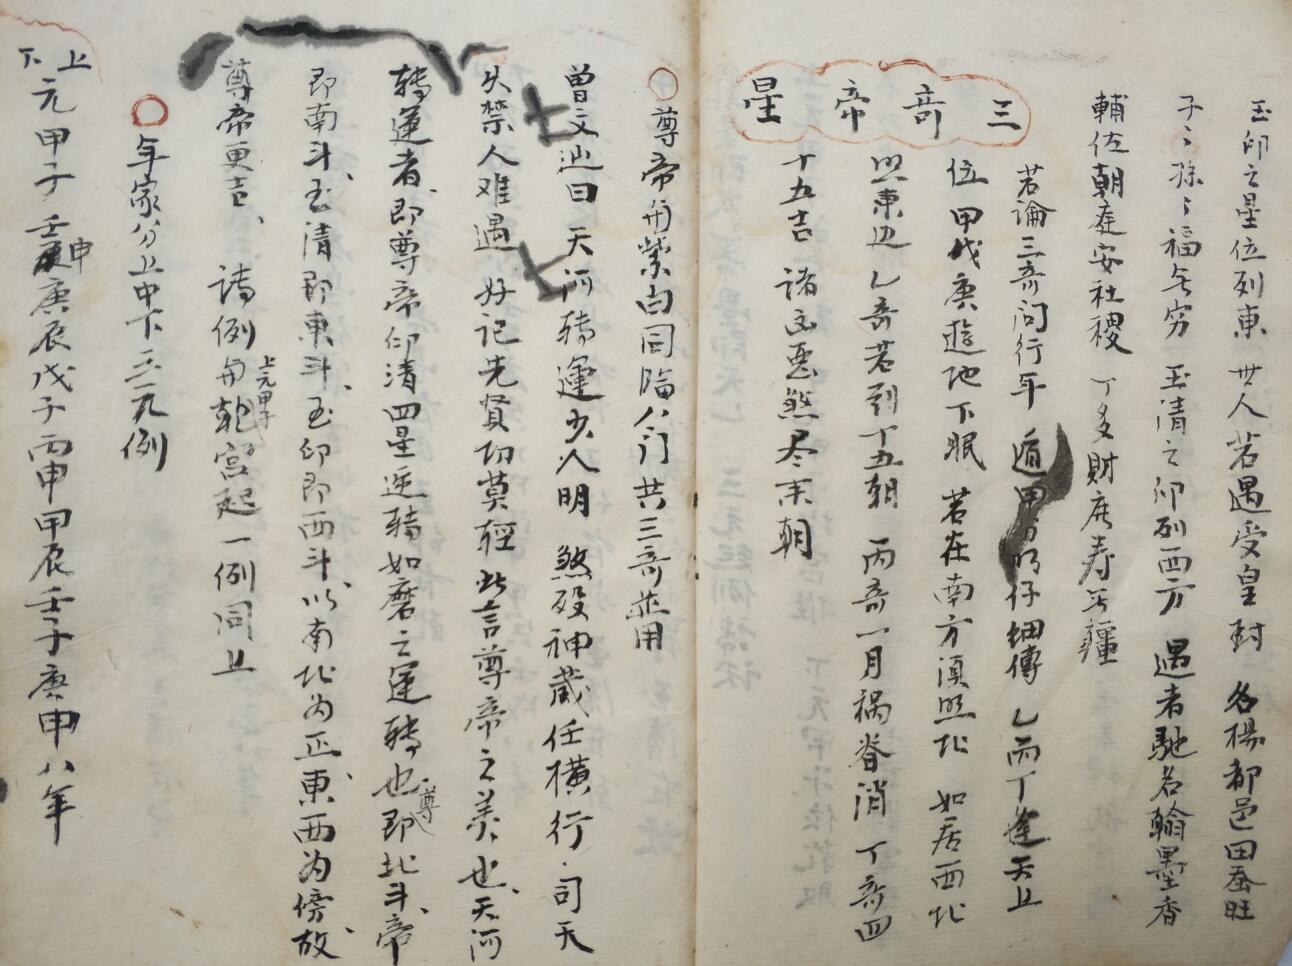 玉印之星位列東 世人若遇受皇封 名楊都邑田蚕旺
子〻孫〻福无穷 玉清之印列西方 遇者馳名翰墨香
輔佐朝庭安社稷 丁多財旺寿无疆
三奇帝星
若論三奇问行年 遁甲 仔细傳 乙丙丁逢天上
位 甲戊庚遊地下眠 若在南方須照北 如居西北
照東边 乙奇若到十五朝 丙奇一月祸眷消 丁奇四
十五吉 諸凶恶煞尽来朝
〇尊帝與紫白同临八门共三奇並用
曾文辿曰天河轉運少人明 煞殁神藏任横行 司天
久禁人难遇 好记先贤切莫輕 此言尊帝之美也、天河
轉運者、即尊帝印清四星逆轉如磨之運轉也即尊北斗、帝
即南斗、玉清即東斗、玉印即西斗、以南北为正、東西为傍故、
尊帝更吉、 诗例與上元甲子乾宫起一例同上
〇年家分上中下三元例
上下元甲子壬申庚辰戊子丙申甲辰壬子庚申八年